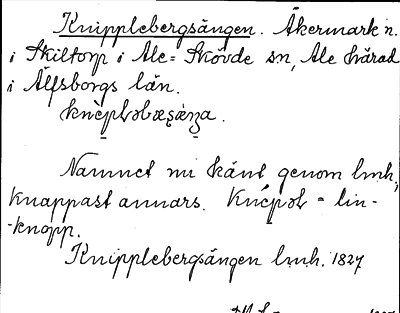 Knipplebergsängen. Åkermark n.
i Skiltorp i Ale-Skövde sn, Ale härad
i Älfsborgs län.
Namnet nu känt genom lmh,
knappast annars. = lin-
-knopp.
Knipplebergsängen lmh. 1827